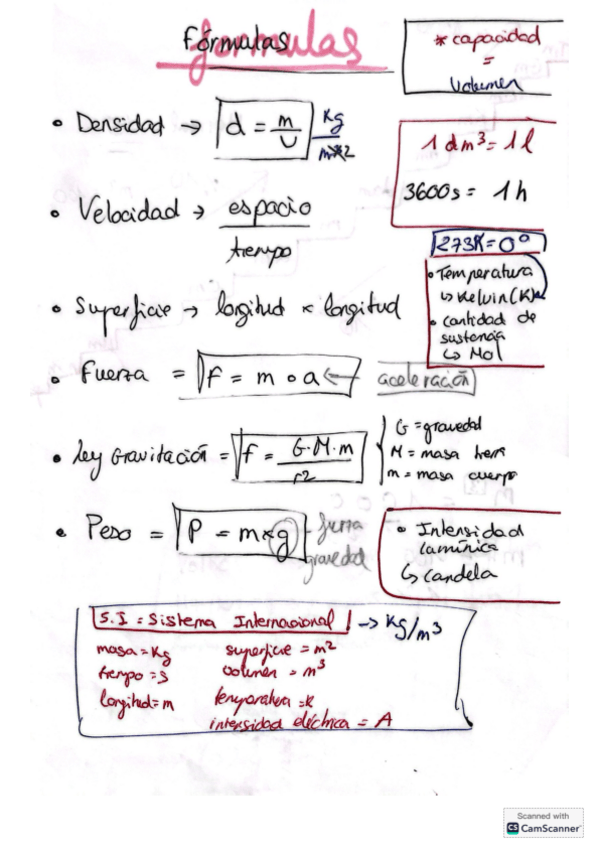 Fórmulas
formulas
* capacidad
=
volumen
• Densidad → d = m/v kg/
1 dm³ = 1 l
3600s = 1h
• Velocidad → espacio
tiempo
273K = 0°
• Temperatura
↳ Kelvin (K)
• cantidad de
sustancia
↳ Mol
• Superficie → longitud × longitud
• Fuerza = f = m • a ← aceleración
• ley Gravitación = f = G·M·m
r2
G = gravedad
M = masa
m = masa cuerpo
• Peso = P = m×g
gravedad
• Intensidad
lumínica
↳ Candela
S.I = Sistema Internacional → Kg/m³
masa = Kg superficie = m²
tiempo = s volumen = m³
longitud = m temperatura = K
intensidad eléctrica = A
Scanned with
CS CamScanner